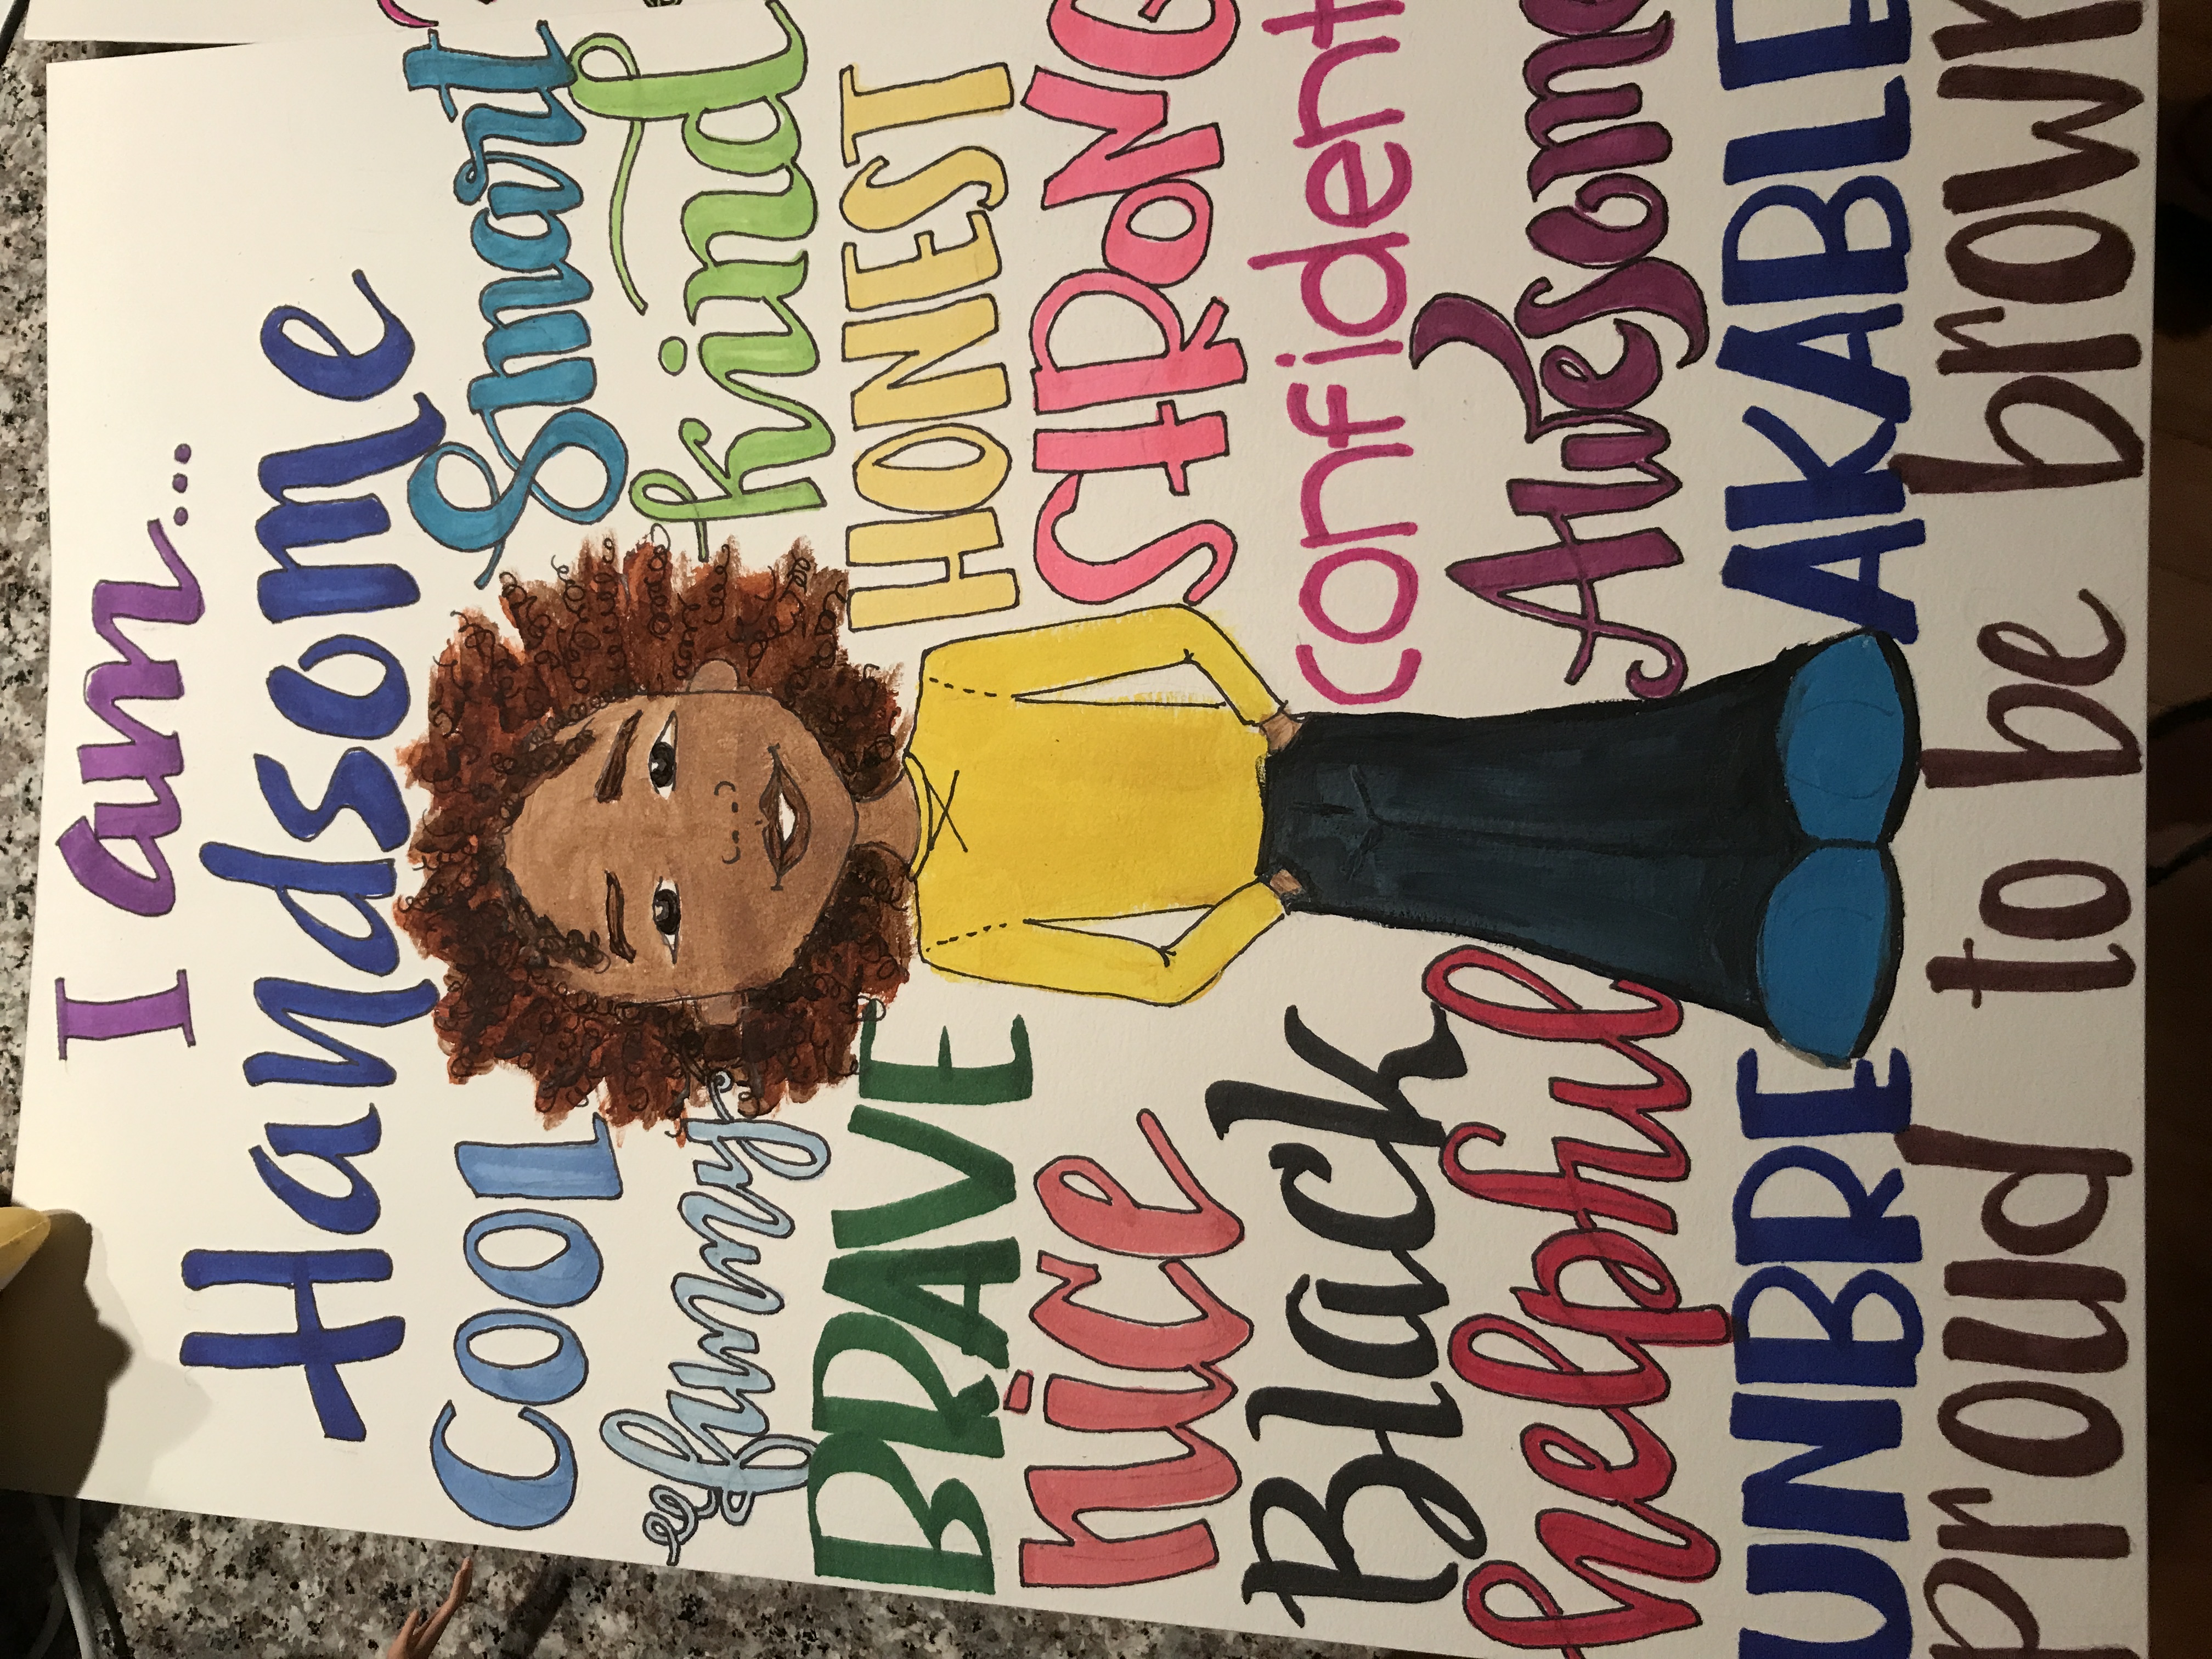 I am...
Handsome
COOL Smart
funny kind
BRAVE HONEST
nice StRoNG
Black confident
helpful Awesome
UNBRE AKABLE
proud to be brown